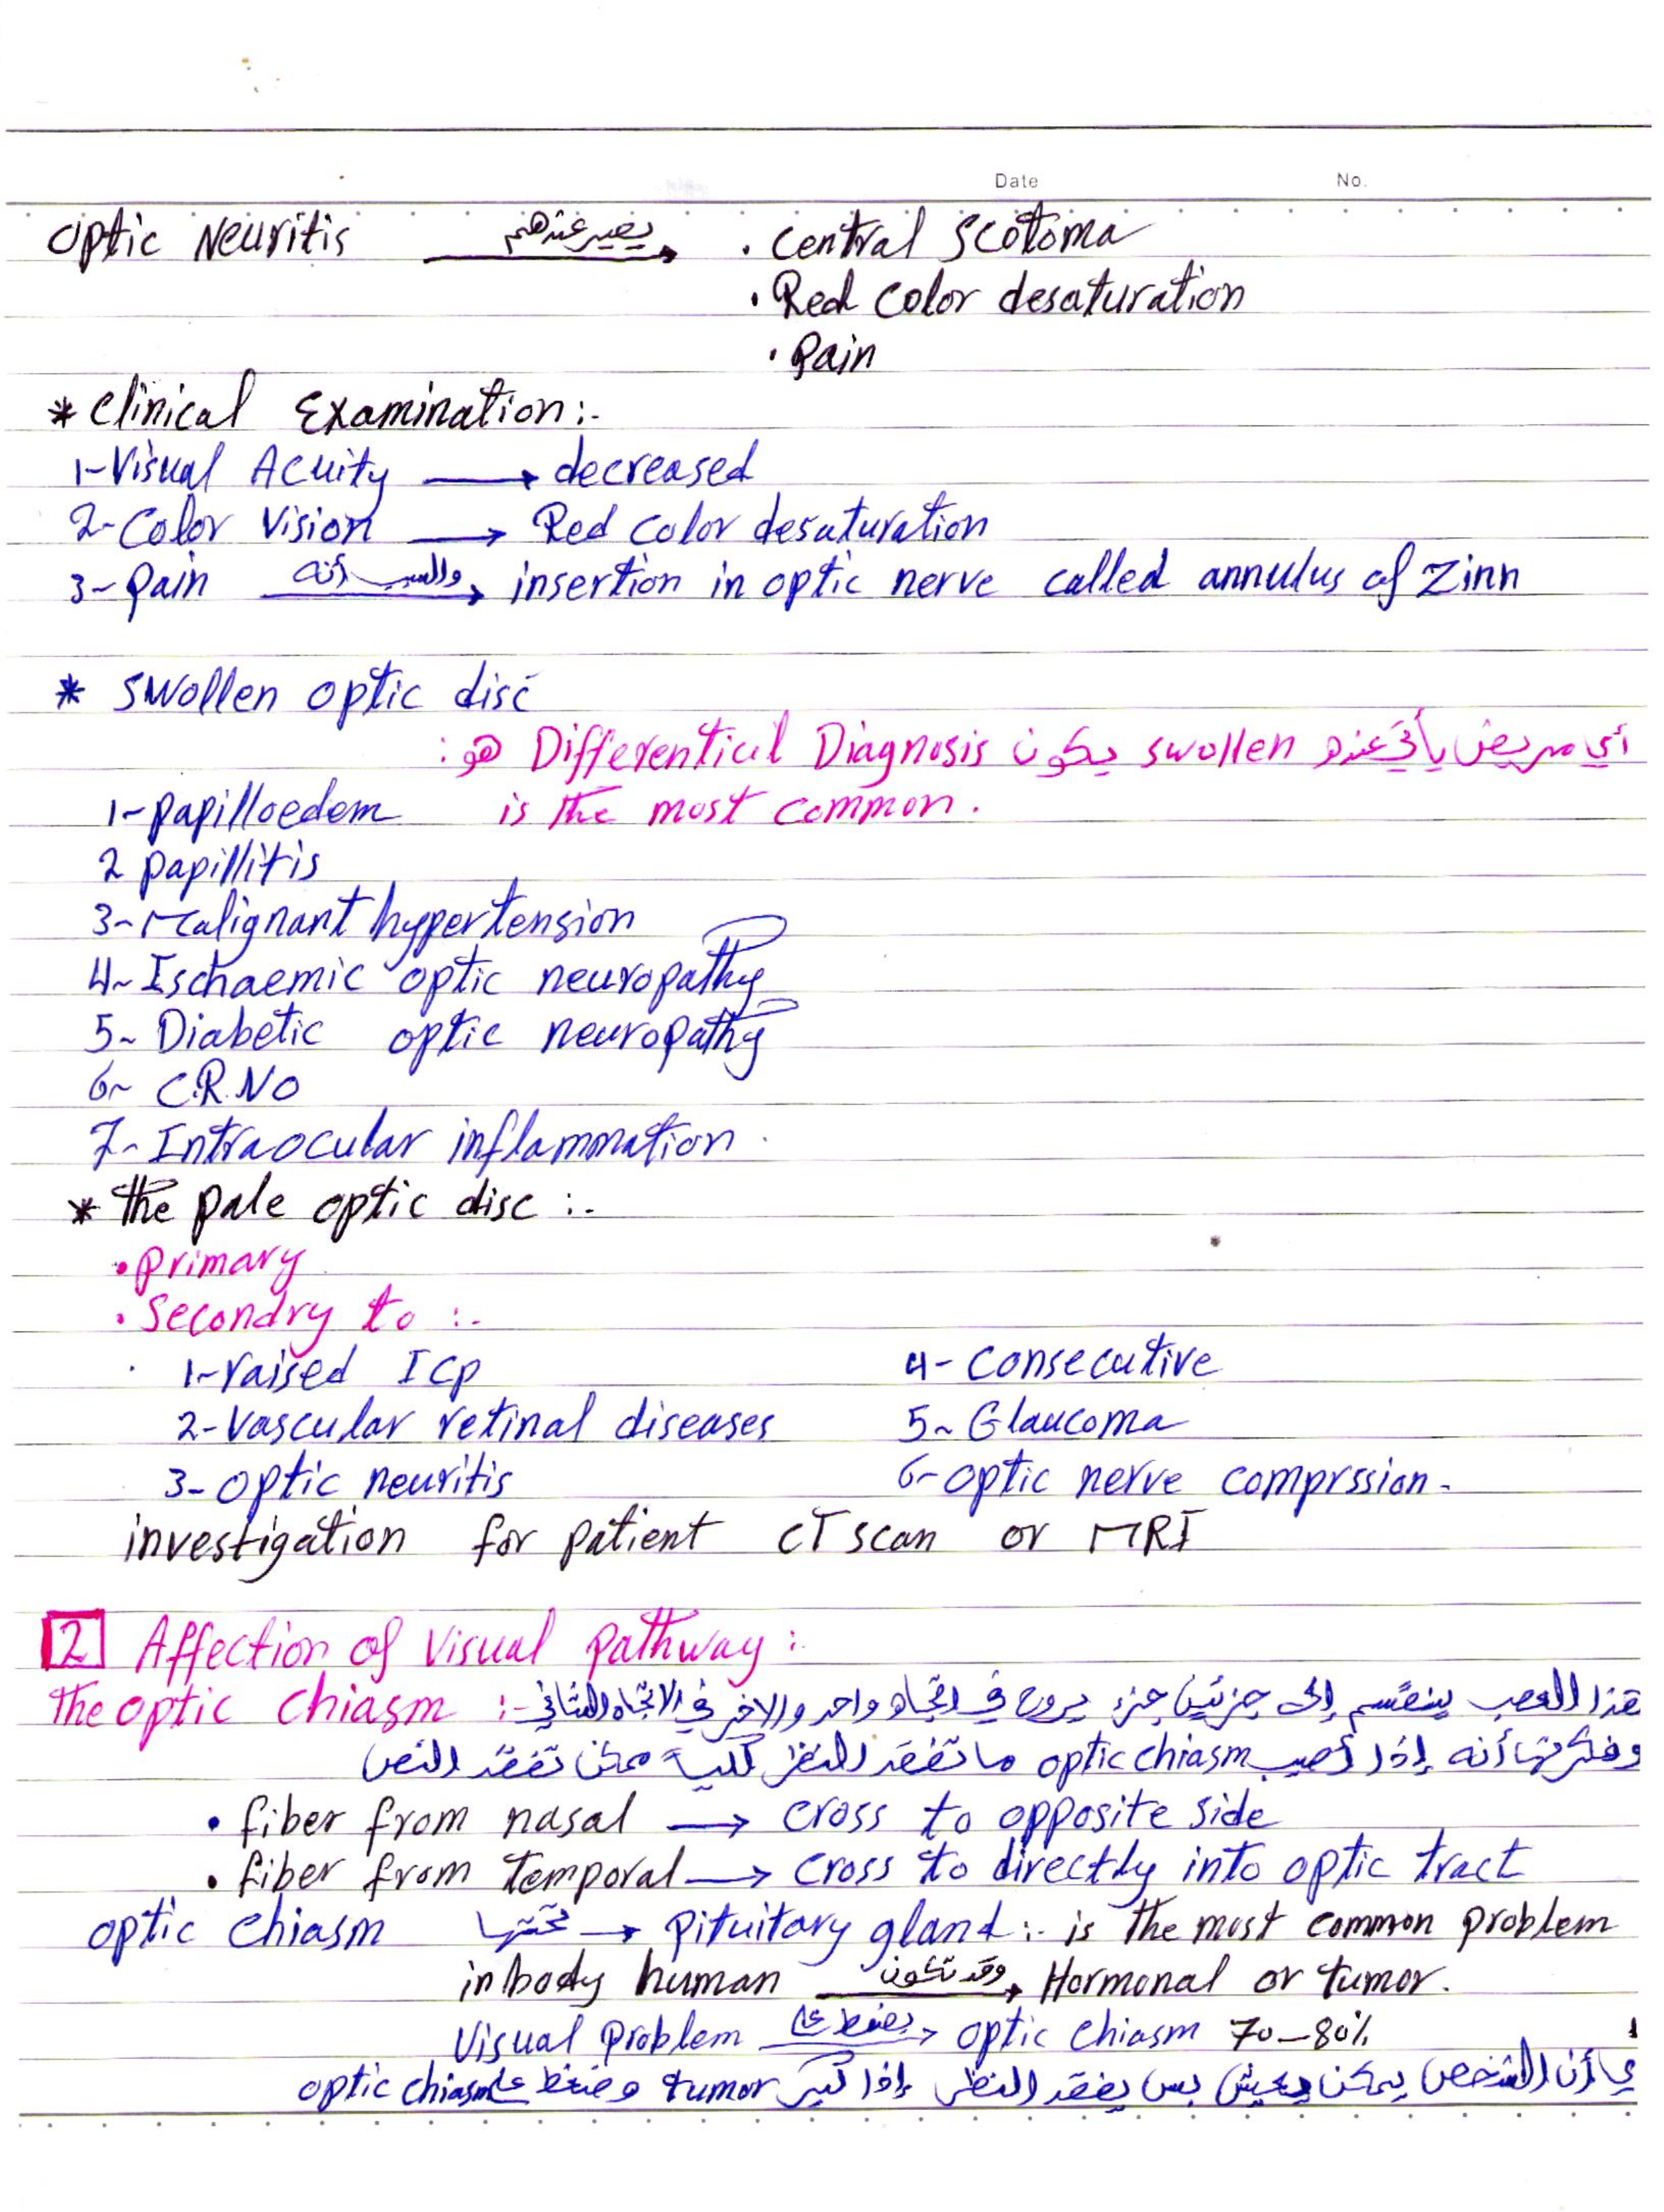 Date No.
Optic Neuritis يصير عندهم → . Central Scotoma
. Red Color desaturation
. Pain
* Clinical Examination :-
1- Visual Acuity → decreased
2- Color Vision → Red color desaturation
3- Pain والسبب أنه → insertion in optic nerve called annulus of Zinn
* Swollen optic disc
أي مريض يأتي عنده swollen يكون Differenticul Diagnosis هو :
1- papilloedem is the most common.
2 papillitis
3- Malignant hypertension
4- Ischaemic optic neuropathy
5- Diabetic optic neuropathy
6- C.R.NO
7- Intraocular inflammation.
* The pale optic disc :-
• Primary
• Secondry to :-
1- raised ICP 4- Consecutive
2- Vascular retinal diseases 5- Glaucoma
3- optic neuritis 6- optic nerve comprssion.
investigation for patient CT scan or MRI
2 Affection of Visual Pathway :
The optic chiasm :- هذا العصب ينقسم إلى جزئين جزء يروح في اتجاه واحد والاخر في الاتجاه الثاني
وفكرتها أنه إذا أصيب optic chiasm ما تفقد النظر كلياً ممكن تفقد النص
• fiber from nasal → cross to opposite side
• fiber from temporal → cross to directly into optic tract
optic chiasm تحتها → Pituitary gland :- is the most common problem
in body human وقد تكون → Hormonal or tumor.
Visual Problem يضغط على → optic chiasm 70-80%
ي أن الشخص يمكن يعيش بس يفقد النظر إذا كبر tumor وضغط على optic chiasm